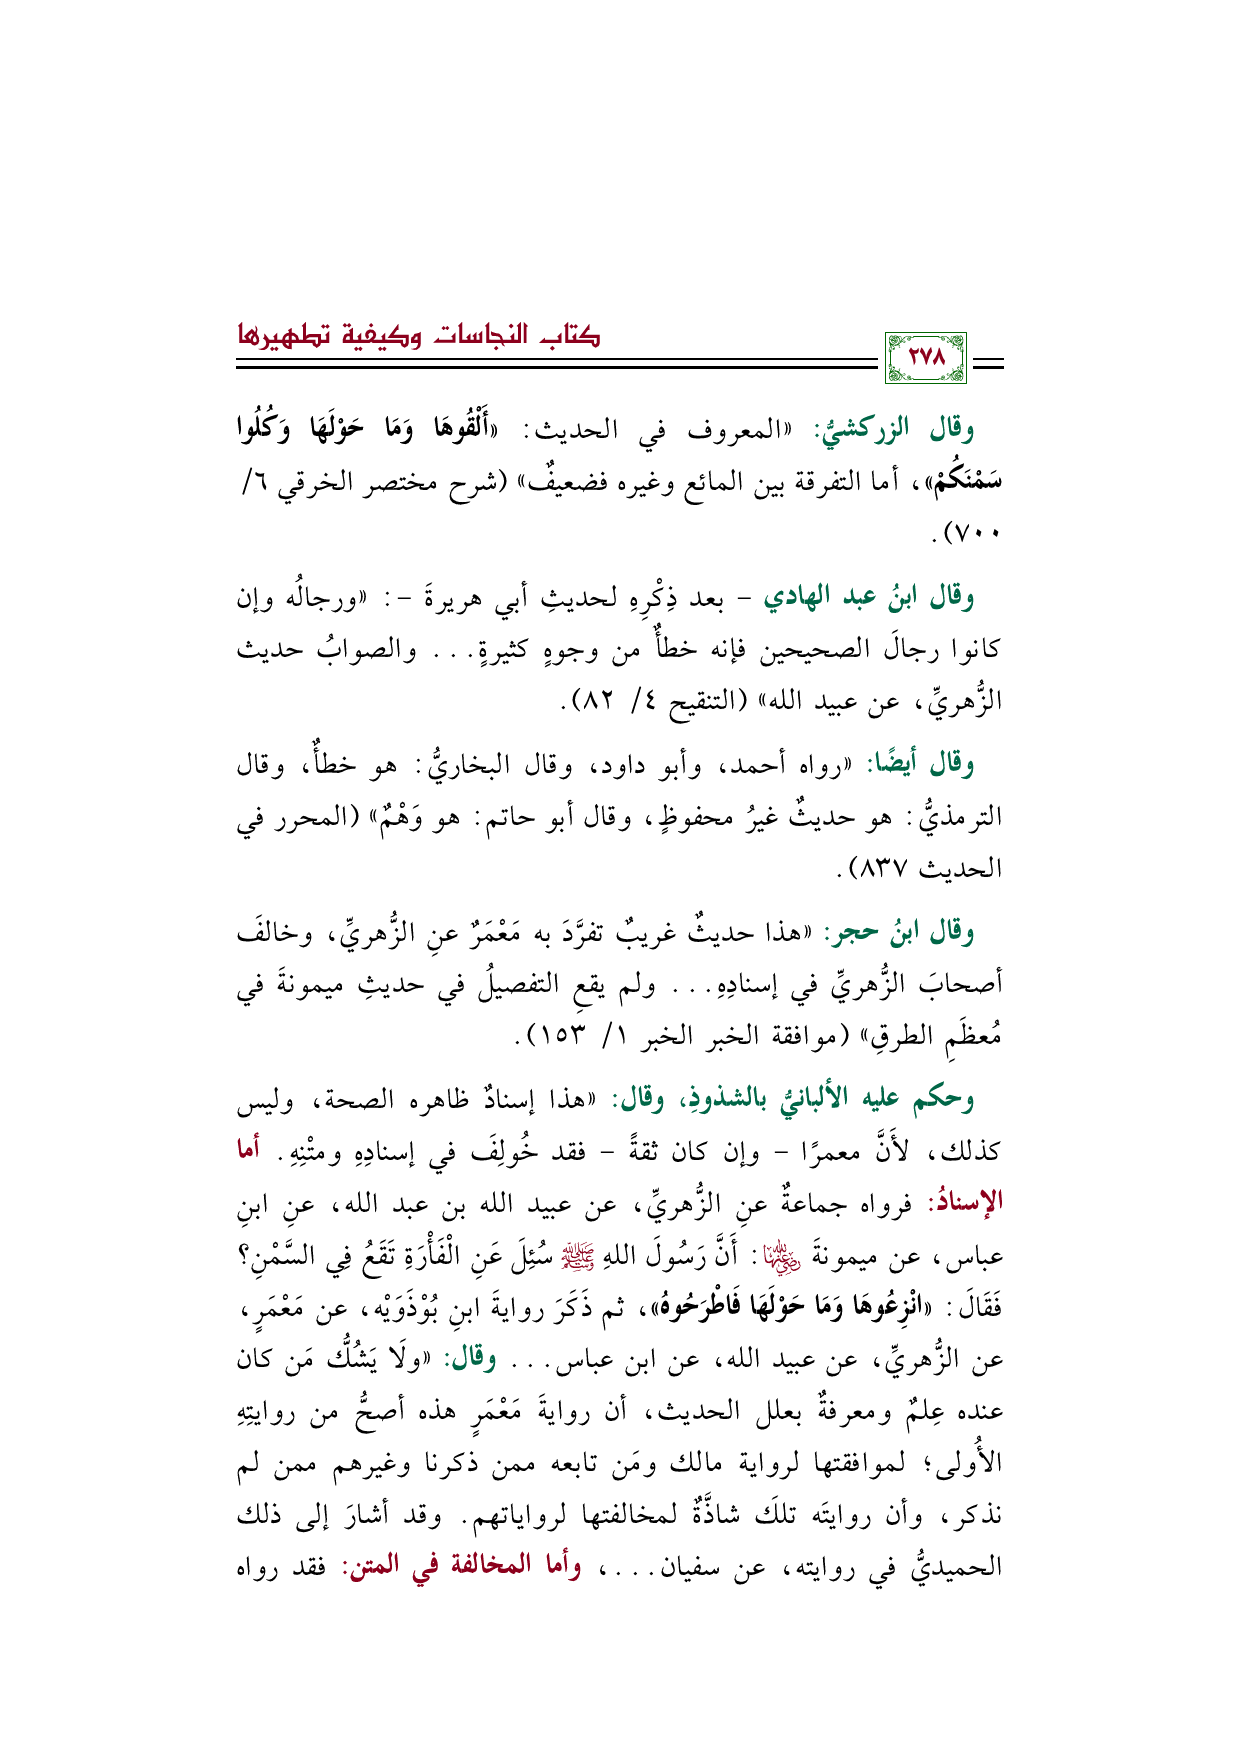 كتاب النجاسات وكيفية تطهيرها
٢٧٨
وقال الزركشيُّ: «المعروف في الحديث: «أَلْقُوهَا وَمَا حَوْلَهَا وَكُلُوا
سَمْنَكُمْ»، أما التفرقة بين المائع وغيره فضعيفٌ» (شرح مختصر الخرقي ٦/
٧٠٠).
وقال ابنُ عبد الهادي - بعد ذِكْرِهِ لحديثِ أبي هريرةَ -: «ورجالُه وإن
كانوا رجالَ الصحيحين فإنه خطأٌ من وجوهٍ كثيرةٍ... والصوابُ حديث
الزُّهريِّ، عن عبيد الله» (التنقيح ٤/ ٨٢).
وقال أيضًا: «رواه أحمد، وأبو داود، وقال البخاريُّ: هو خطأٌ، وقال
الترمذيُّ: هو حديثٌ غيرُ محفوظٍ، وقال أبو حاتم: هو وَهْمٌ» (المحرر في
الحديث ٨٣٧).
وقال ابنُ حجر: «هذا حديثٌ غريبٌ تفرَّدَ به مَعْمَرٌ عنِ الزُّهريِّ، وخالفَ
أصحابَ الزُّهريِّ في إسنادِهِ... ولم يقعِ التفصيلُ في حديثِ ميمونةَ في
مُعظَمِ الطرقِ» (موافقة الخبر الخبر ١/ ١٥٣).
وحكم عليه الألبانيُّ بالشذوذِ، وقال: «هذا إسنادٌ ظاهره الصحة، وليس
كذلك، لأَنَّ معمرًا - وإن كان ثقةً - فقد خُولِفَ في إسنادِهِ ومتْنِهِ. أما
الإسنادُ: فرواه جماعةٌ عنِ الزُّهريِّ، عن عبيد الله بن عبد الله، عنِ ابنِ
عباس، عن ميمونةَ رضي الله عنها: أَنَّ رَسُولَ اللهِ ﷺ سُئِلَ عَنِ الْفَأْرَةِ تَقَعُ فِي السَّمْنِ؟
فَقَالَ: «انْزِعُوهَا وَمَا حَوْلَهَا فَاطْرَحُوهُ»، ثم ذَكَرَ روايةَ ابنِ بُوْذَوَيْه، عن مَعْمَرٍ،
عن الزُّهريِّ، عن عبيد الله، عن ابن عباس... وقال: «ولَا يَشُكُّ مَن كان
عنده عِلمٌ ومعرفةٌ بعلل الحديث، أن روايةَ مَعْمَرٍ هذه أصحُّ من روايتِهِ
الأُولى؛ لموافقتها لرواية مالك ومَن تابعه ممن ذكرنا وغيرهم ممن لم
نذكر، وأن روايتَه تلكَ شاذَّةٌ لمخالفتها لرواياتهم. وقد أشارَ إلى ذلك
الحميديُّ في روايته، عن سفيان...، وأما المخالفة في المتن: فقد رواه